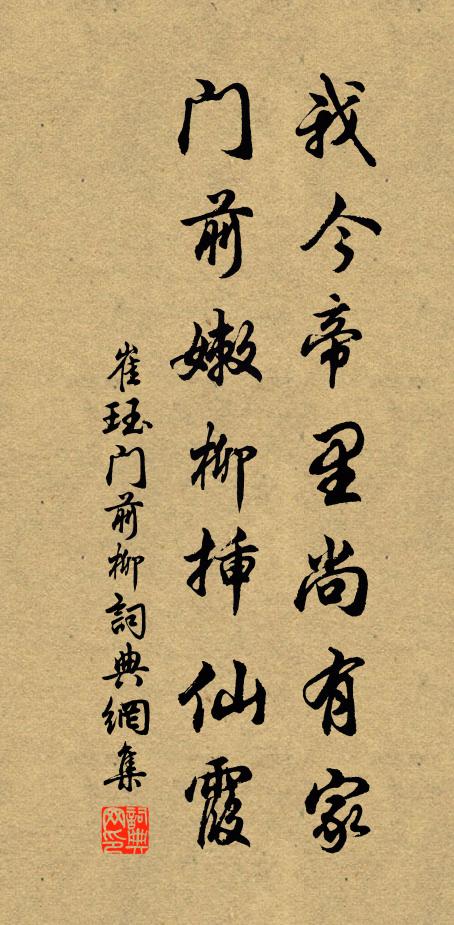 我今帝里尚有家
门前嫩柳插仙霞
崔珏门前柳詞典網集
詞典网印